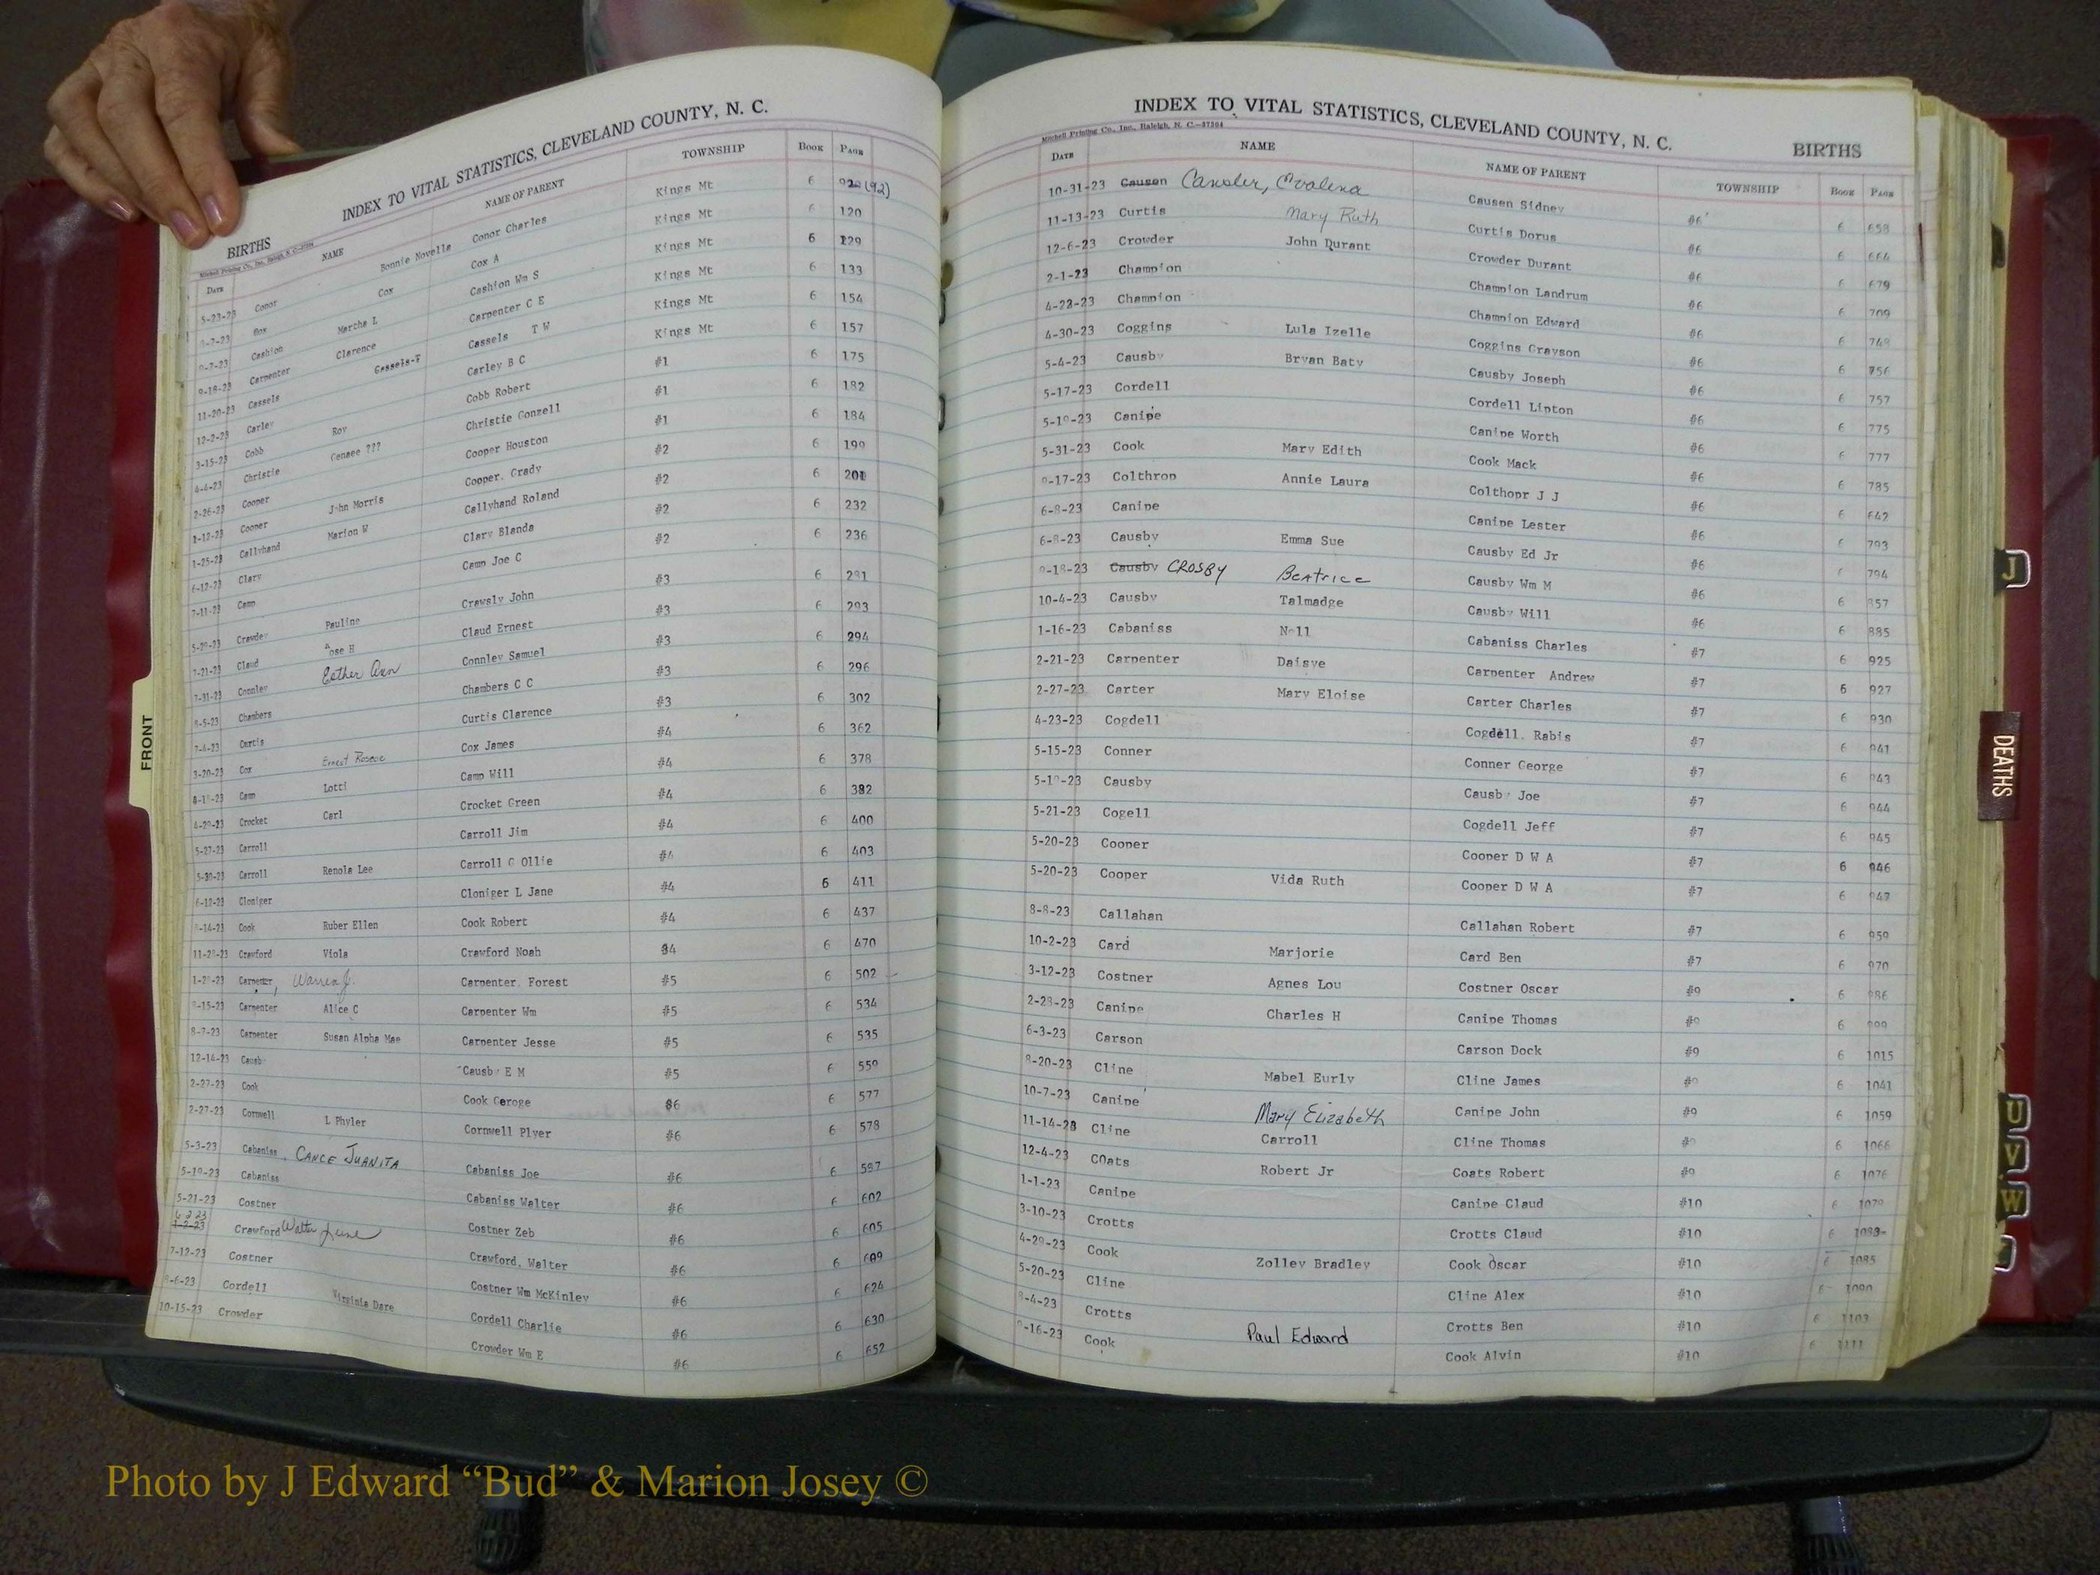 INDEX TO VITAL STATISTICS, CLEVELAND COUNTY, N. C.
BIRTHS
Mitchell Printing Co., Inc. Raleigh, N. C.
DATE NAME NAME OF PARENT TOWNSHIP BOOK PAGE
5-23-23 Conor Bonnie Novella Conor Charles Kings Mt 6 (92)
Cox Cox A Kings Mt 6 120
Cashion Martha L Cashion Wm S Kings Mt 6 129
9-18-23 Carpenter Clarence Carpenter C E Kings Mt 6 133
11-20-23 Cassels Cassels T W Kings Mt 6 154
12-2-23 Carley Carley B C Kings Mt 6 157
3-15-23 Cobb Roy Cobb Robert #1 6 175
4-4-23 Christie Genaee ??? Christie Gonzell #1 6 182
2-26-23 Cooper Cooper Houston #1 6 184
Cooper John Morris Cooper, Grady #2 6 199
1-25-23 Callyhand Marion W Callyhand Roland #2 6 201
6-12-23 Clary Clary Blanda #2 6 232
7-11-23 Camp Camp Joe C #2 6 236
Pauline Crawsly John #3 6 281
7-21-23 Claud Claud Ernest #3 6 293
7-31-23 Connley Esther Ann Connley Samuel #3 6 294
8-5-23 Chambers Chambers C C #3 6 296
7-4-23 Curtis Curtis Clarence #3 6 302
3-20-23 Cox Ernest Roscoe Cox James #4 6 362
Camp Lotti Camp Will #4 6 378
4-29-23 Crocket Carl Crocket Green #4 6 382
5-27-23 Carroll Carroll Jim #4 6 400
5-30-23 Carroll Renola Lee Carroll G Ollie #4 6 403
6-12-23 Cloniger Cloniger L Jane #4 6 411
Cook Ruber Ellen Cook Robert #4 6 437
11-28-23 Crawford Viola Crawford Noah 34 6 470
Carpenter, Warren J. Carpenter, Forest #5 6 502
Carpenter Alice C Carpenter Wm #5 6 534
8-7-23 Carpenter Susan Alpha Mae Carpenter Jesse #5 6 535
12-14-23 Causby Causby E M #5 6 559
2-27-23 Cook Cook Geroge 6 577
2-27-23 Cornwell L Phyler Cornwell Plyer #6 6 578
5-3-23 Cabaniss, CANCE JUANITA Cabaniss Joe #6 6 587
5-19-23 Cabaniss Cabaniss Walter #6 6 602
5-21-23 Costner Costner Zeb #6 6 605
6 2 23 1-2-23 Crawford Walter June Crawford, Walter #6 6 609
7-12-23 Costner Costner Wm McKinley #6 6 624
Cordell Virginia Dare Cordell Charlie #6 6 630
10-15-23 Crowder Crowder Wm E #6 6 652
FRONT
INDEX TO VITAL STATISTICS, CLEVELAND COUNTY, N. C.
BIRTHS
Mitchell Printing Co., Inc., Raleigh, N. C.—37304
DATE NAME NAME OF PARENT TOWNSHIP BOOK PAGE
10-31-23 Causen Cansler, Evalena Causen Sidney #6 6 658
11-13-23 Curtis Mary Ruth Curtis Dorus #6 6 664
12-6-23 Crowder John Durant Crowder Durant #6 6 679
2-1-23 Champion Champion Landrum #6 6 709
4-22-23 Champion Champion Edward #6 6 749
4-30-23 Coggins Lula Izelle Coggins Grayson #6 6 756
5-4-23 Causby Bryan Baty Causby Joseph #6 6 757
5-17-23 Cordell Cordell Lipton #6 6 775
5-19-23 Canipe Canipe Worth #6 6 777
5-31-23 Cook Mary Edith Cook Mack #6 6 785
9-17-23 Colthrop Annie Laura Colthopr J J #6 6 642
6-8-23 Canipe Canipe Lester #6 6 793
6-8-23 Causby Emma Sue Causby Ed Jr #6 6 794
9-18-23 Causby CROSBY Beatrice Causby Wm M #6 6 857
10-4-23 Causby Talmadge Causby Will #6 6 885
1-16-23 Cabaniss Nell Cabaniss Charles #7 6 925
2-21-23 Carpenter Daisye Carpenter Andrew #7 6 927
2-27-23 Carter Mary Eloise Carter Charles #7 6 930
4-23-23 Cogdell Cogdell, Rabis #7 6 941
5-15-23 Conner Conner George #7 6 943
5-19-23 Causby Causby Joe #7 6 944
5-21-23 Cogell Cogdell Jeff #7 6 945
5-20-23 Cooper Cooper D W A #7 6 946
5-20-23 Cooper Vida Ruth Cooper D W A #7 6 947
8-8-23 Callahan Callahan Robert #7 6 959
10-2-23 Card Marjorie Card Ben #7 6 970
3-12-23 Costner Agnes Lou Costner Oscar #9 6 986
2-28-23 Canipe Charles H Canipe Thomas #9 6 999
6-3-23 Carson Carson Dock #9 6 1015
8-20-23 Cline Mabel Eurly Cline James #9 6 1041
10-7-23 Canipe Mary Elizabeth Canipe John #9 6 1059
11-14-23 Cline Carroll Cline Thomas #9 6 1066
12-4-23 COats Robert Jr Coats Robert #9 6 1076
1-1-23 Canipe Canipe Claud #10 6 1079
3-10-23 Crotts Crotts Claud #10 6 1083
4-29-23 Cook Zolley Bradley Cook Oscar #10 6 1085
5-20-23 Cline Cline Alex #10 6 1090
8-4-23 Crotts Crotts Ben #10 6 1103
9-16-23 Cook Paul Edward Cook Alvin #10 6 1111
J
DEATHS
U
V
W
Photo by J Edward “Bud” & Marion Josey ©